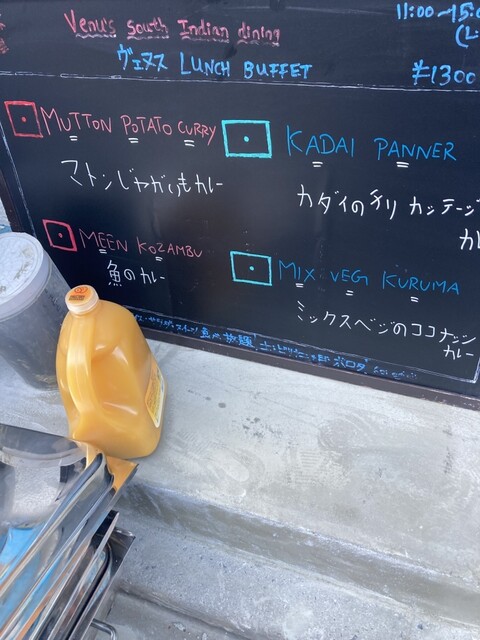 Venu's South Indian dining
11:00~15:0
(L
ヴェヌス LUNCH BUFFET
¥1300
MUTTON POTATO CURRY
マトンじゃがいもカレー
KADAI PANNER
カダイのチリ カッテージ
カレ
MEEN KOZAMBU
魚のカレー
MIX VEG KURUMA
ミックスベジのココナッツ
カレー
食べ放題